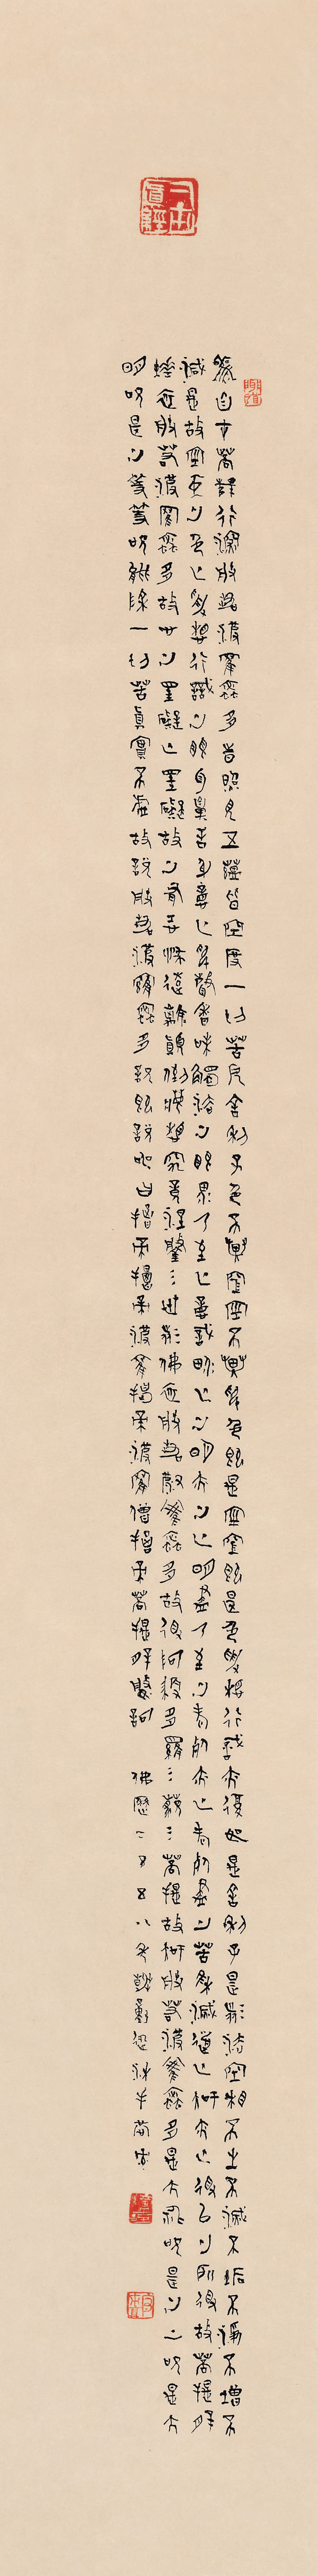 觀自在菩薩行深般若波羅蜜多時照見五蘊皆空度一切苦厄舍利子色不異空空不異色色即是空空即是色受想行識亦復如是舍利子是諸法空相不生不滅不垢不淨不增不
減是故空中無色無受想行識無眼耳鼻舌身意無色聲香味觸法無眼界乃至無意識界無無明亦無無明盡乃至無老死亦無老死盡無苦集滅道無智亦無得以無所得故菩提薩
埵依般若波羅蜜多故心無罣礙無罣礙故無有恐怖遠離顛倒夢想究竟涅槃三世諸佛依般若波羅蜜多故得阿耨多羅三藐三菩提故知般若波羅蜜多是大神咒是無上咒是大
明咒是無等等咒能除一切苦真實不虛故說般若波羅蜜多咒即說咒曰揭帝揭帝波羅揭帝波羅僧揭帝菩提薩婆訶 佛曆二五五八年